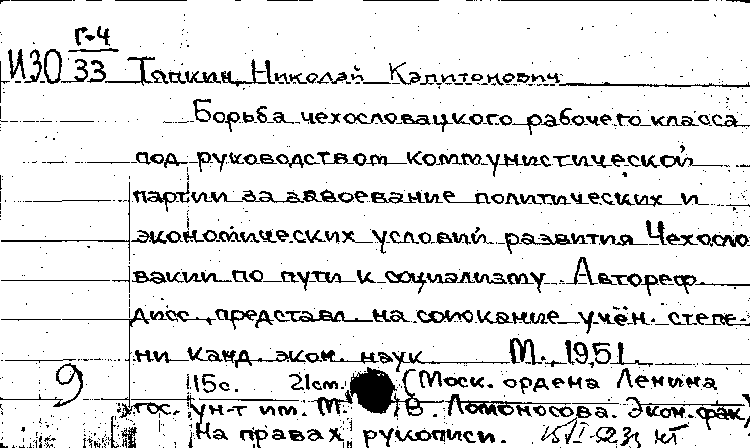 Г-4
ИЗО 33 Тапкин, Николай Капитонович
Борьба чехословацкого рабочего класса
под руководством коммунистической
партии за завоевание политических и
экономических условий развития Чехосло
вакии по пути к социализму. Автореф.
дисс., представл. на соискание учён. степе-
ни канд. экон. наук М., 1951.
9 15с. 21см. (Моск. ордена Ленина
гос. ун-т им. М. В. Ломоносова. Экон. фак.)
На правах рукописи.